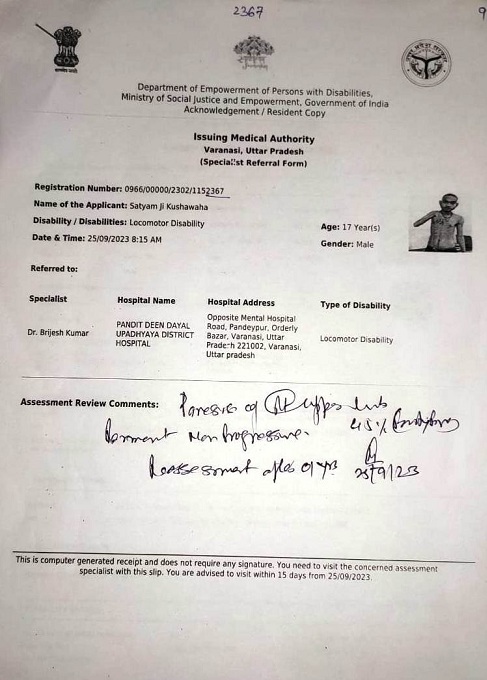 2367
9
Department of Empowerment of Persons with Disabilities,
Ministry of Social Justice and Empowerment, Government of India
Acknowledgement / Resident Copy
Issuing Medical Authority
Varanasi, Uttar Pradesh
(Specialist Referral Form)
Registration Number: 0966/00000/2302/1152367
Name of the Applicant: Satyam Ji Kushawaha
Disability / Disabilities: Locomotor Disability
Age: 17 Year(s)
Date & Time: 25/09/2023 8:15 AM
Gender: Male
Referred to:
Specialist Hospital Name Hospital Address Type of Disability
Dr. Brijesh Kumar
PANDIT DEEN DAYAL
UPADHYAYA DISTRICT
HOSPITAL
Opposite Mental Hospital
Road, Pandeypur, Orderly
Bazar, Varanasi, Uttar
Pradesh 221002, Varanasi,
Uttar pradesh
Locomotor Disability
Assessment Review Comments: Paresis of upper limb
45%
Non Progressive.
Reassessment after yr
25/9/23
This is computer generated receipt and does not require any signature. You need to visit the concerned assessment
specialist with this slip. You are advised to visit within 15 days from 25/09/2023.